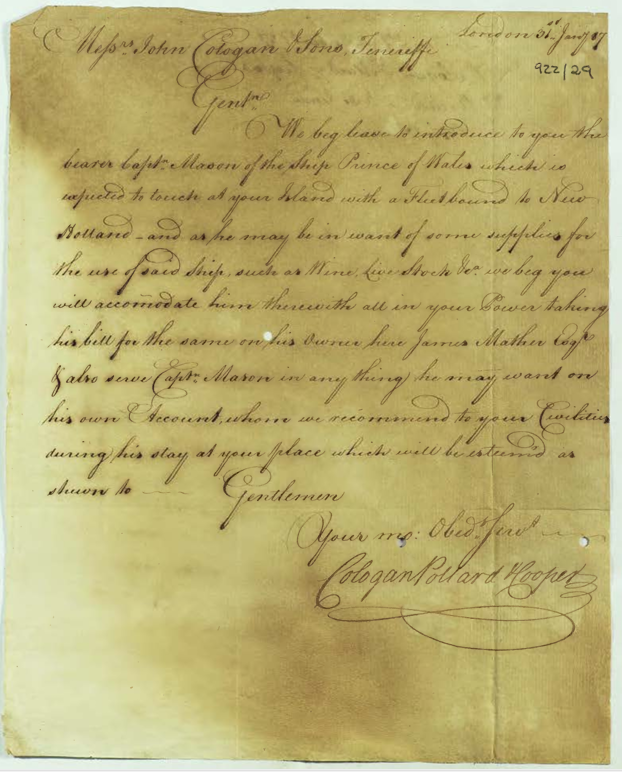 London 31st Jany 17
Messrs John Cologan & Sons, Teneriffe
922/29
Gentn
We beg leave to introduce to you the
bearer Captn Mason of the Ship Prince of Wales which is
expected to touch at your Island with a Fleet bound to New
Holland - and as he may be in want of some supplies for
the use of said Ship, such as Wine, Live Stock &ca we beg you
will accommodate him therewith all in your Power taking
his bill for the same on his Owner here James Mather Esqr
& also serve Captn Mason in any thing he may want on
his own Account, whom we recommend to your Civilities
during his stay at your place which will be esteem'd as
shewn to
Gentlemen
Your mo: Obedt Servts
Cologan Pollard & Cooper